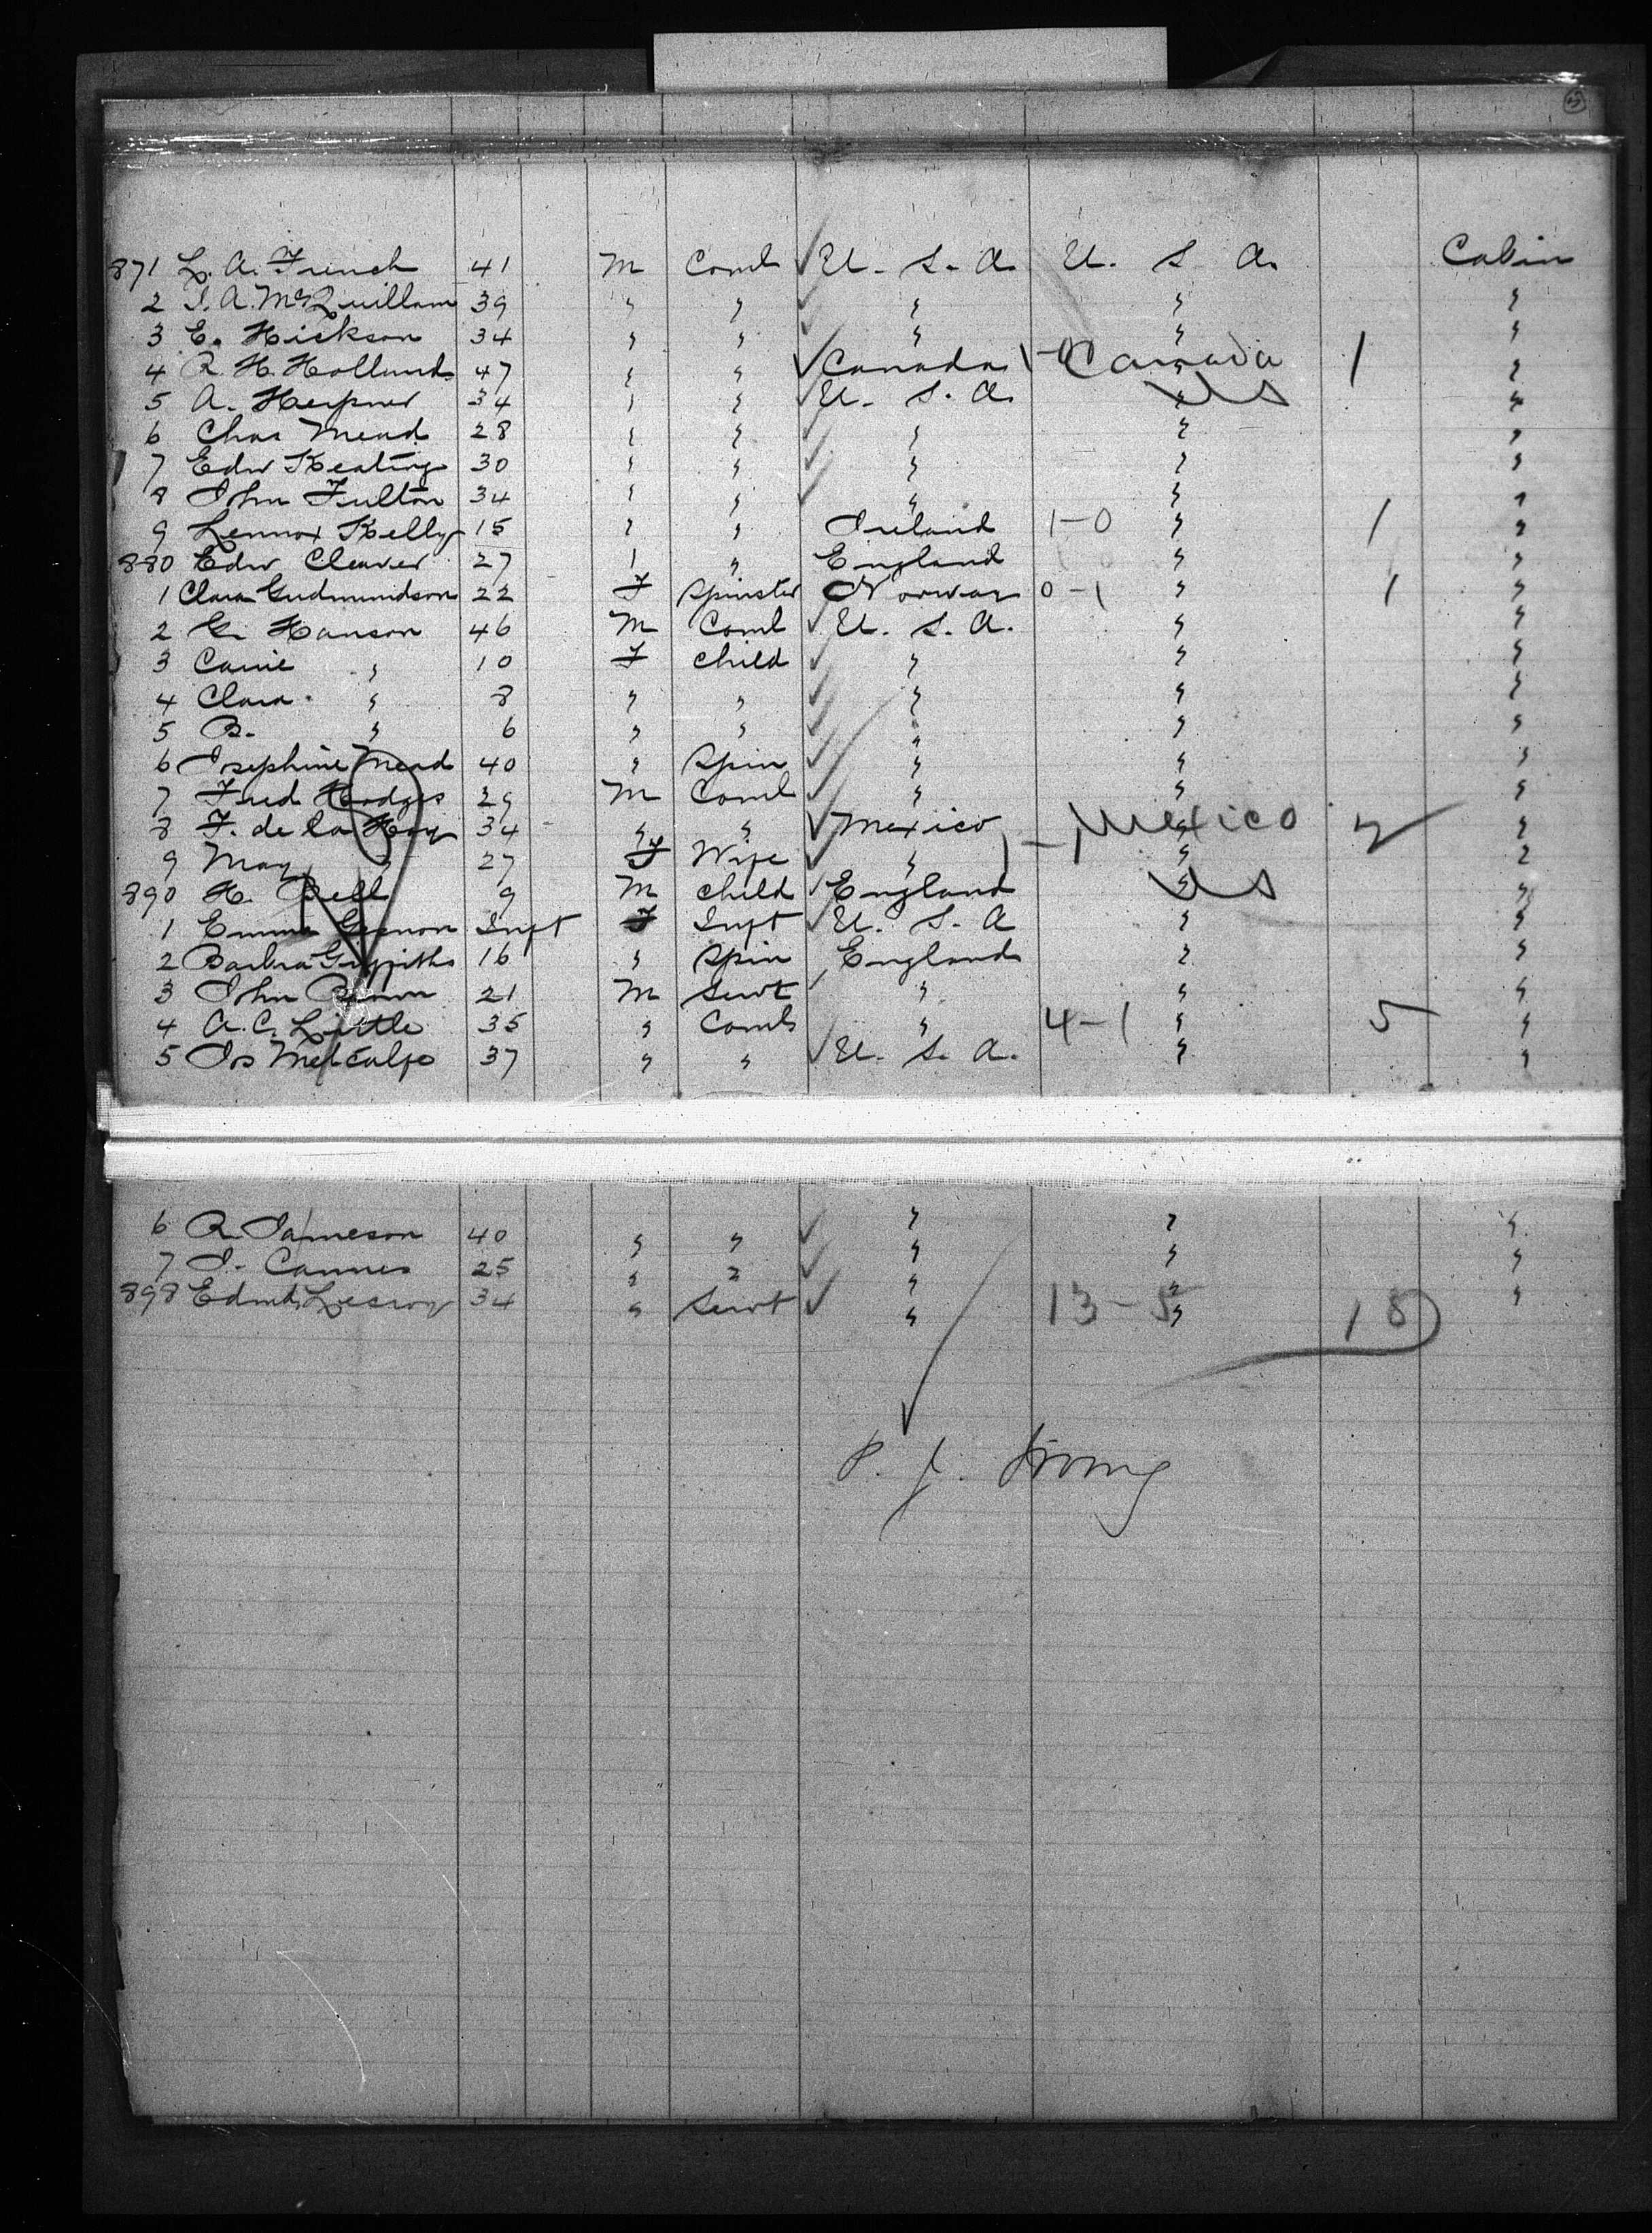 871 L. A. French 41 M Coml U. S. A. U. S. A. Cabin
2 J. A. McQuillam 39 " " " " "
3 E. Hickson 34 " " " " "
4 R. H. Holland 47 " " Canada 1-0 Canada 1 "
5 A. 34 " " U. S. A. US "
6 Chas Mead 28 " " " " "
7 Edw Keating 30 " " " " "
8 John Fulton 34 " " " " "
9 Lennox Kelly 15 " " Ireland 1-0 " 1 "
880 Edw Cleaver 27 " " England " "
1 Clara Gudmundson 22 F Spinster Norway 0-1 " 1 "
2 G. Hanson 46 M Coml U. S. A. " "
3 Carrie " 10 F Child " " "
4 Clara " 8 " " " " "
5 B. " 6 " " " " "
6 Josephine Mead 40 " Spin " " "
7 Fred Hodges 29 M Coml " " "
8 F. de la Hoy 34 " " Mexico 1-1 Mexico 2 "
9 May " 27 F Wife " " "
890 H. Bell 9 M Child England US "
1 Emma Inft F Inft U. S. A " "
2 Barbra Griffiths 16 " Spin England " "
3 John 21 M Servt " " "
4 A. C. Little 35 " Coml " 4-1 " 5 "
5 Jos Metcalfe 37 " " U. S. A. " "
6 R. Jameson 40 " " " " "
7 J. Cannes 25 " " " " "
898 Edmd Lesroy 34 " Servt " 13-5 " 18 "
P. J.